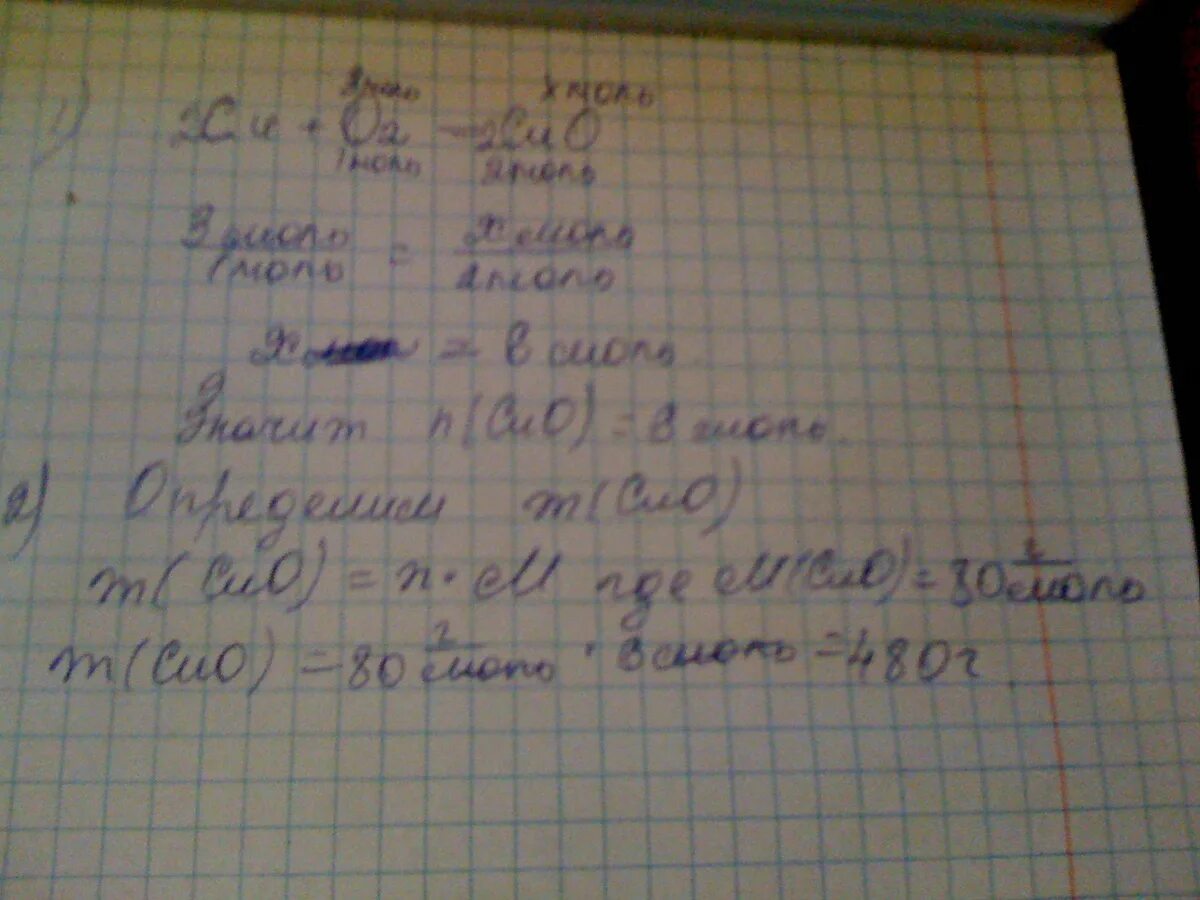 3 моль х моль
1) 2Cu + O2 = 2CuO
1 моль 2 моль
3 моль = х моль
1 моль 2 моль
х = 6 моль
Значит n(CuO) = 6 моль.
2) Определим m(CuO)
m(CuO) = n · M где M(CuO) = 80 г/моль
m(CuO) = 80 г/моль · 6 моль = 480 г